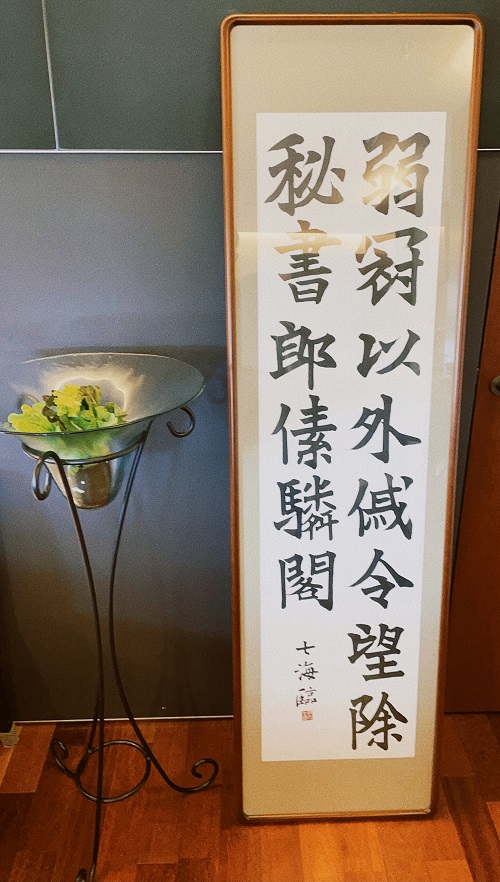 弱冠以外傶令望除
秘書郎傃驎閣
七海臨